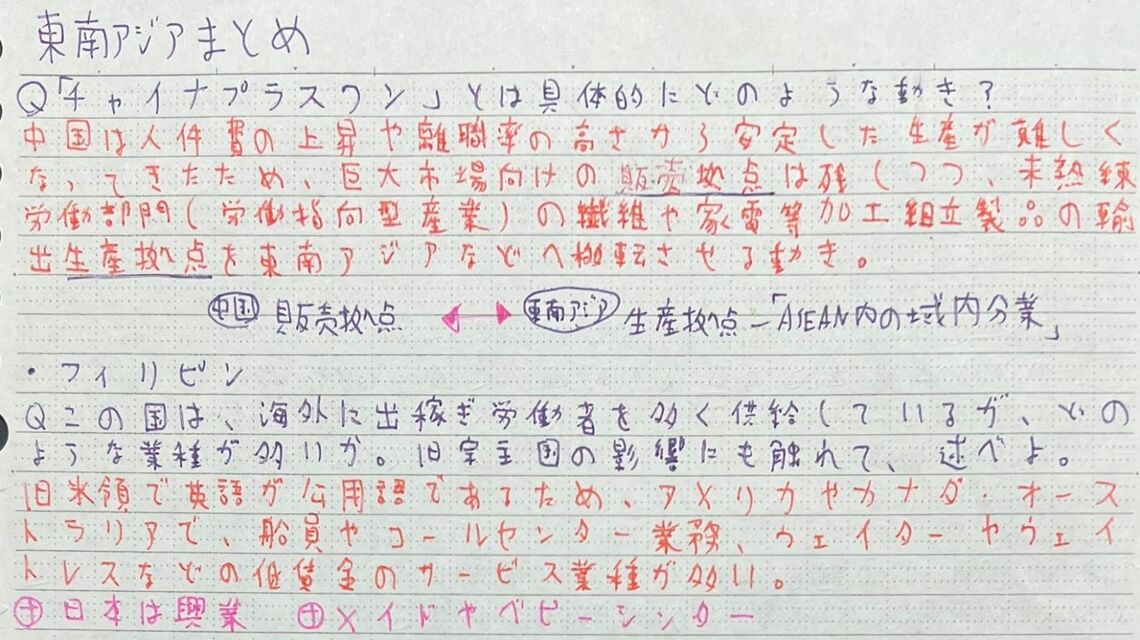 東南アジアまとめ
Q「チャイナプラスワン」とは具体的にどのような動き？
中国は人件費の上昇や離職率の高さから安定した生産が難しく
なってきたため、巨大市場向けの販売拠点は残しつつ、未熟練
労働部門(労働指向型産業)の繊維や家電等加工組立製品の輸
出生産拠点を東南アジアなどへ移転させる動き。
中国 販売拠点 ↔ 東南アジア 生産拠点ー「ASEAN内の域内分業」
・フィリピン
Qこの国は、海外に出稼ぎ労働者を多く供給しているが、どの
ような業種が多いか。旧宗主国の影響にも触れて、述べよ。
旧米領で英語が公用語であるため、アメリカやカナダ・オース
トラリアで、船員やコールセンター業務、ウェイターやウェイ
トレスなどの低賃金のサービス業種が多い。
⊕日本は興業 ⊕メイドやベビーシッター